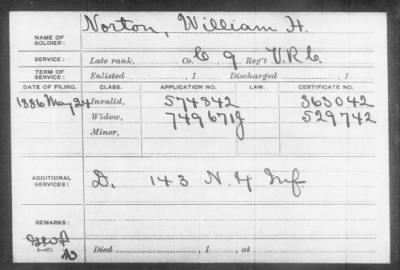 NAME OF SOLDIER: Norton, William H.
SERVICE: Late rank, Co. C 9 Reg't V.R.C.
TERM OF SERVICE: Enlisted , 1 Discharged , 1
DATE OF FILING. CLASS. APPLICATION NO. LAW. CERTIFICATE NO.
1886 May 24 Invalid, 574842 363042
Widow, 749671 529742
Minor,
ADDITIONAL SERVICES: D. 143 N.Y. Inf.
REMARKS:
Died , 1 , at